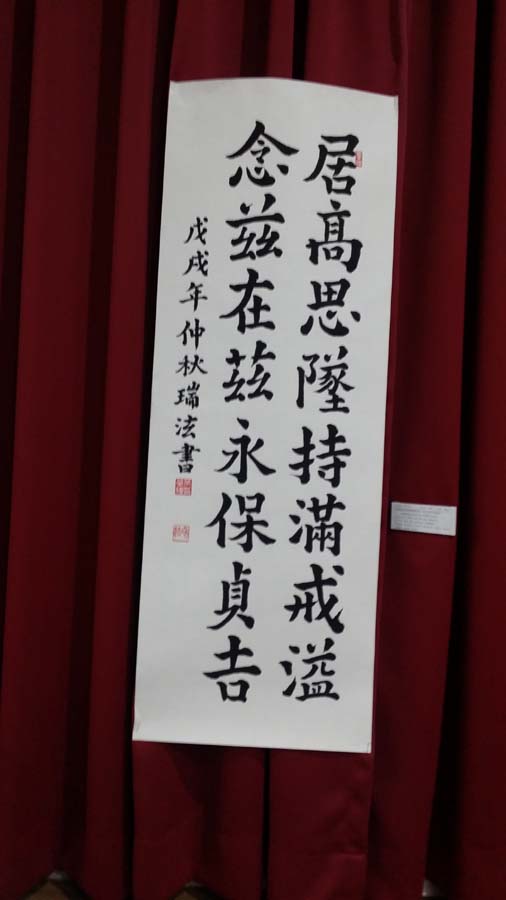 居高思墜持滿戒溢
念茲在茲永保貞吉
戊戌年仲秋瑞法書